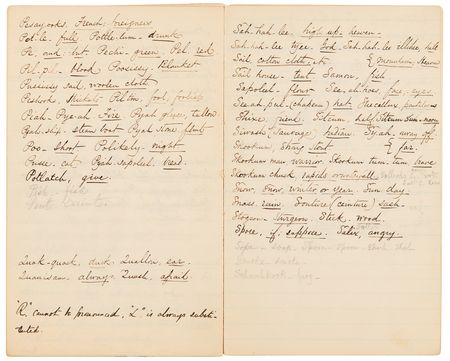 Pesayooks, French, foreigners
Potle, full, Pottle-lum - drunk
Pe, and, but Pechi - green. Pil, red
Pil-pil - blood Poosissy - Blanket
Pusissy sail, woolen cloth
Peshooks, thickets Pilton, fool, foolish
Piah - Pye-ah Fire Pyah glease, tallow
Pyah ship - steam boat Pyah stone flint
Poo - Shoot Polikely - night
Pusse, cat Piah-sapolell bread.
Potlatch, give
Quak-quack, duck. Quollon, ear.
Quanisum always Quash, afraid
"R." cannot be pronounced, "L" is always substi-
tuted.
Sah-hah-lee high up - heaven -
Sah-hah-lee tyee God Sah-hah-lee illihee, hill
Sail, cotton cloth, etc. mountain, Heaven
Sail house - tent Samon, fish
Sapolell - flour See-ah-hoos, face, eyes.
See-ah-pul (chapeau) hat
Sitcum, half Sitcum Sun - noon
Siwash (Sauvage) Indian Siyah, away off
Skookum, strong stout far.
Skookum man, warrior. Skookum tum-tum brave
Skookum chuck rapids
Snow, snow, winter or year. Sun day.
Snass, rain. Senture (ceinture) sash -
Stogeon - sturgeon. Stick, wood.
Spose, if, suppose. Solix, angry
Sope - soap. Spoon - spoon